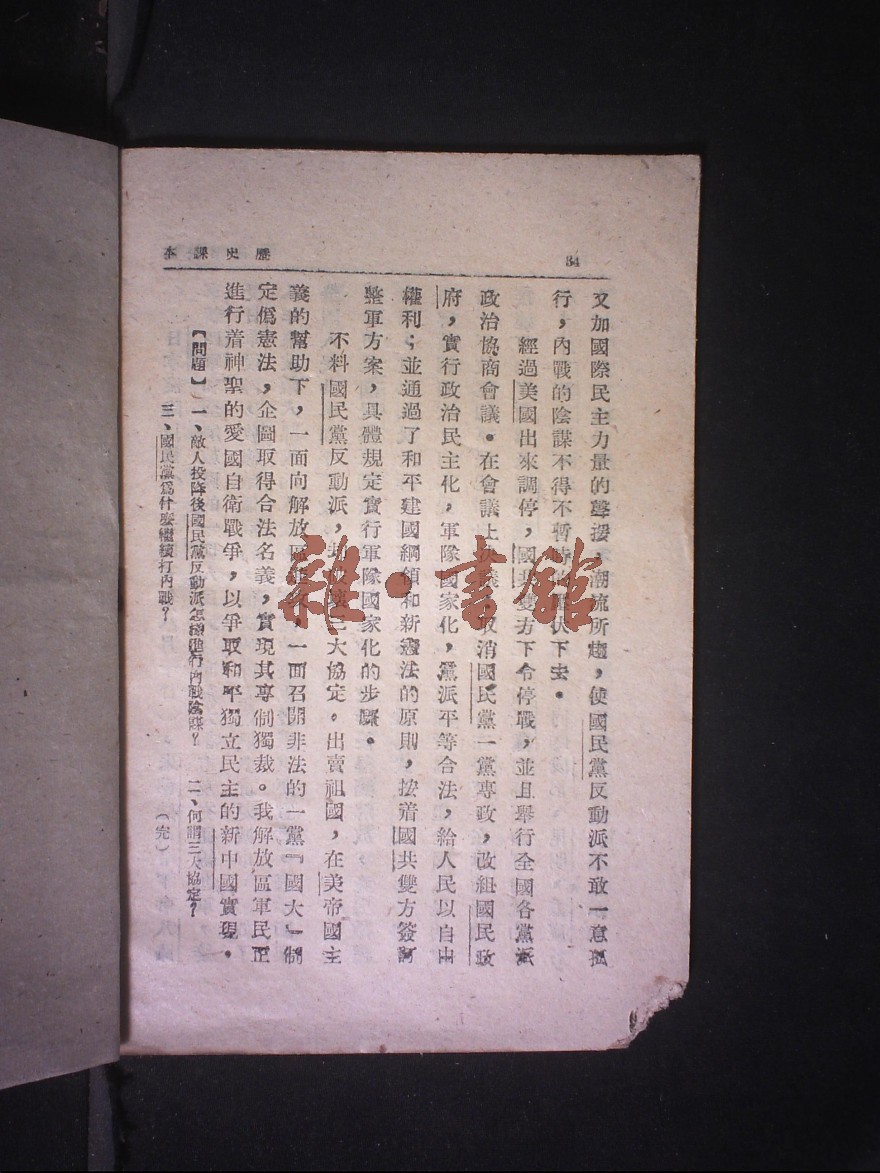 歷史課本
34
又加國際民主力量的聲援，潮流所趨，使國民黨反動派不敢一意孤
行，內戰的陰謀不得不暫時伏下去。
經過美國出來調停，國共雙方下令停戰，並且舉行全國各黨派
政治協商會議。在會議上決取消國民黨一黨專政，改組國民政
府，實行政治民主化，軍隊國家化，黨派平等合法，給人民以自由
權利；並通過了和平建國綱領和新憲法的原則，按着國共雙方簽訂
整軍方案，具體規定實行軍隊國家化的步驟。
不料國民黨反動派，却破壞三大協定。出賣祖國，在美帝國主
義的幫助下，一面向解放區進攻，一面召開非法的一黨「國大」制
定偽憲法，企圖取得合法名義，實現其專制獨裁。我解放區軍民正
進行着神聖的愛國自衛戰爭，以爭取和平獨立民主的新中國實現。
【問題】一、敵人投降後國民黨反動派怎樣進行內戰陰謀？ 二、何謂三大協定？
三、國民黨為什麼繼續打內戰？
（完）
雜·書館